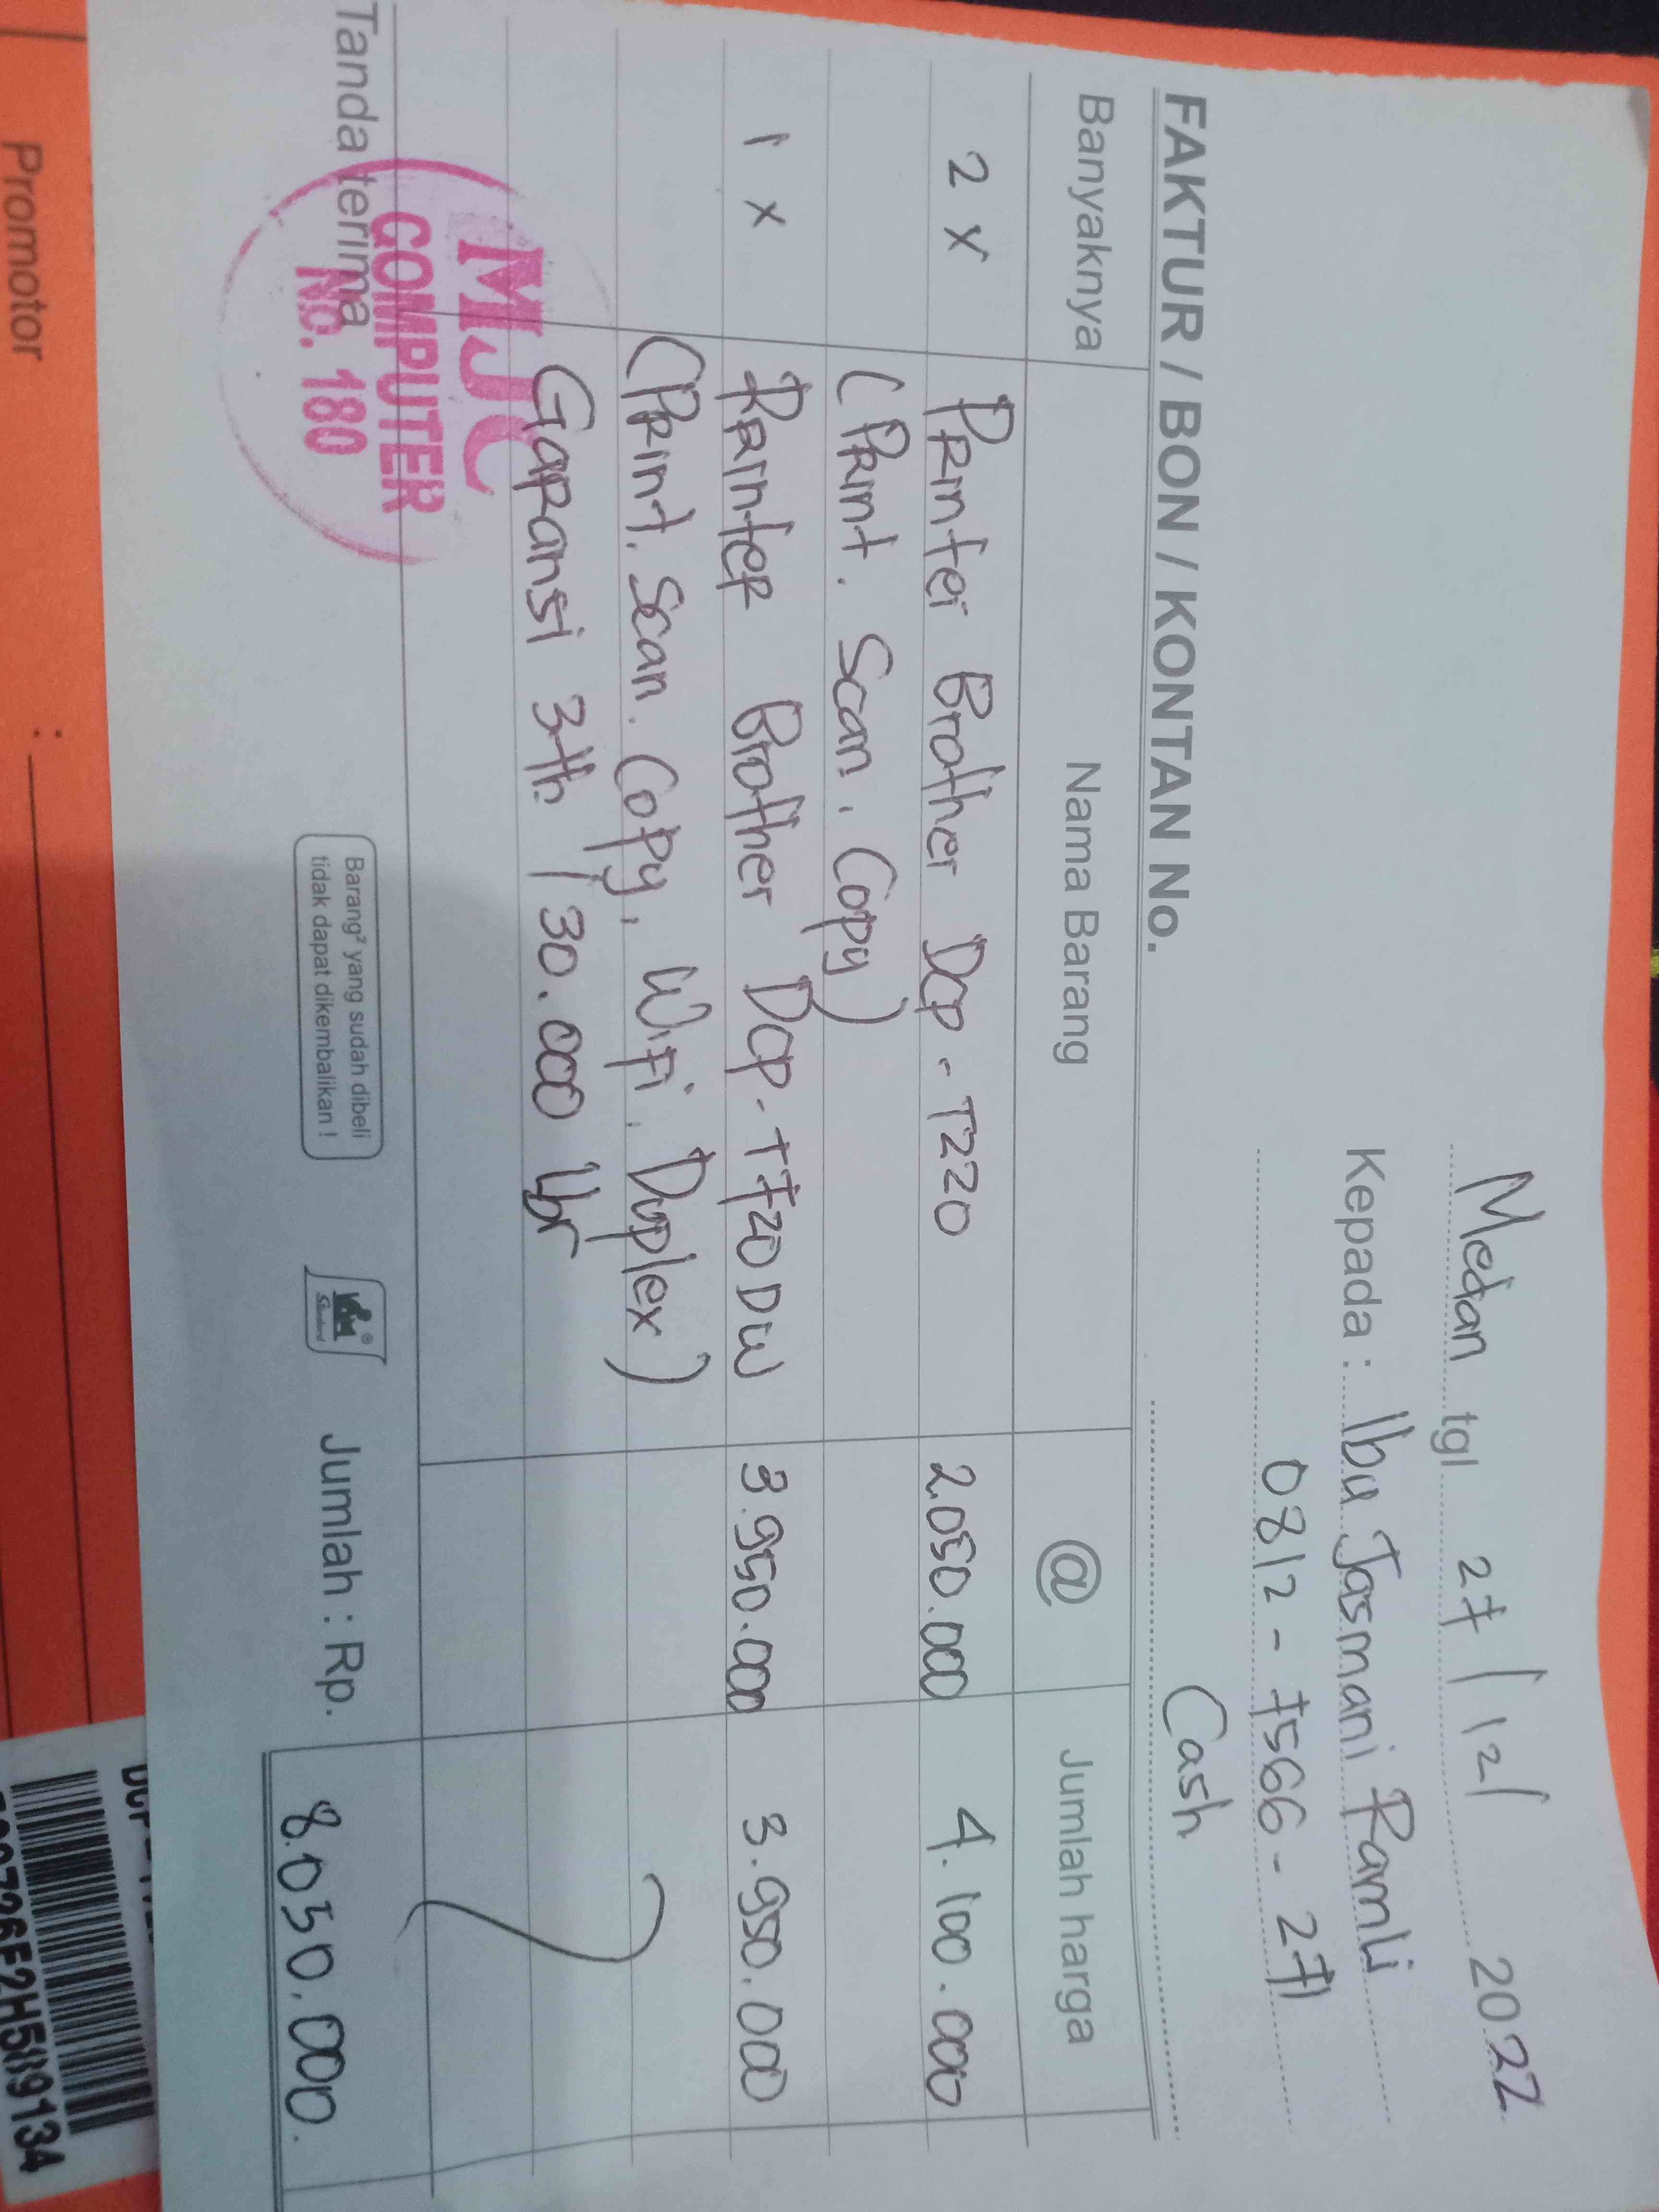 Medan tgl 27/12/2022
Kepada : Ibu Jasmani Ramli
0812-7566-271
FAKTUR / BON / KONTAN No. Cash
Banyaknya Nama Barang @ Jumlah harga
2 x Printer Brother Dcp-T220 2.050.000 4.100.000
(Print. Scan. Copy)
1 x Printer Brother Dcp-T720DW 3.950.000 3.950.000
(Print. Scan. Copy, Wifi. Duplex)
Garansi 3th / 30.000 lbr
Tanda terima
MJC
COMPUTER
No. 180
Barang² yang sudah dibeli
tidak dapat dikembalikan !
Standard
Jumlah : Rp. 8.050.000.
Promotor :